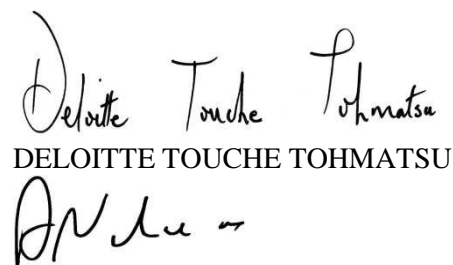 Deloitte Touche Tohmatsu
DELOITTE TOUCHE TOHMATSU